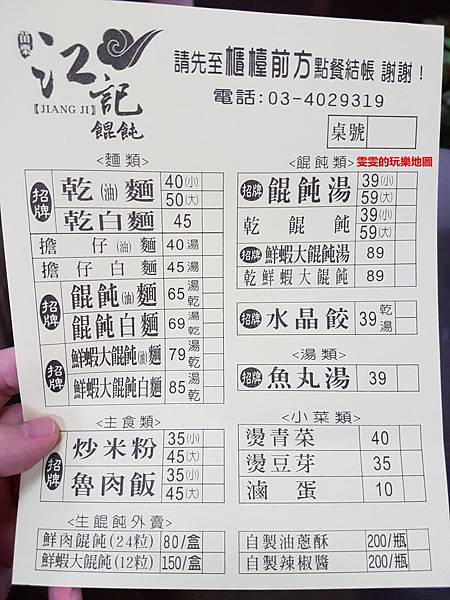 苗栗
江記
【JIANG JI】
餛飩
請先至櫃檯前方點餐結帳 謝謝!
電話:03-4029319
桌號
<麵類>
招牌 乾(油)麵 40(小) 50(大)
乾白麵 45
擔仔(油)麵 40湯
擔仔白麵 45湯
招牌 餛飩(油)麵 65湯乾
餛飩白麵 69湯乾
招牌 鮮蝦大餛飩(油)麵 79湯乾
鮮蝦大餛飩白麵 85湯乾
<主食類>
招牌 炒米粉 35(小) 45(大)
魯肉飯 35(小) 45(大)
<生餛飩外賣>
鮮肉餛飩(24粒) 80/盒
鮮蝦大餛飩(12粒) 150/盒
<餛飩類> 雯雯的玩樂地圖
招牌 餛飩湯 39(小) 59(大)
乾餛飩 39(小) 59(大)
招牌 鮮蝦大餛飩湯 89
乾鮮蝦大餛飩 89
招牌 水晶餃 39乾湯
<湯類>
招牌 魚丸湯 39
<小菜類>
燙青菜 40
燙豆芽 35
滷蛋 10
自製油蔥酥 200/瓶
自製辣椒醬 200/瓶